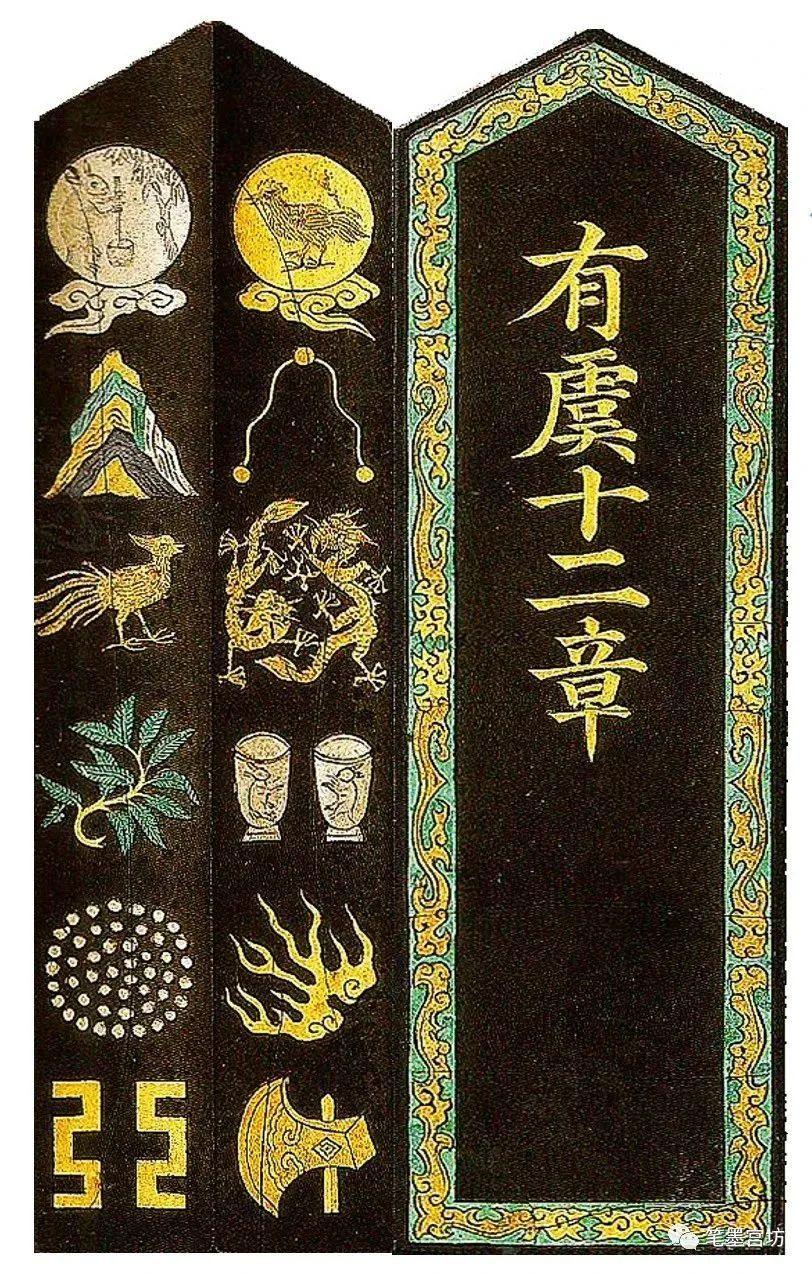 有虞十二章
笔墨宫坊